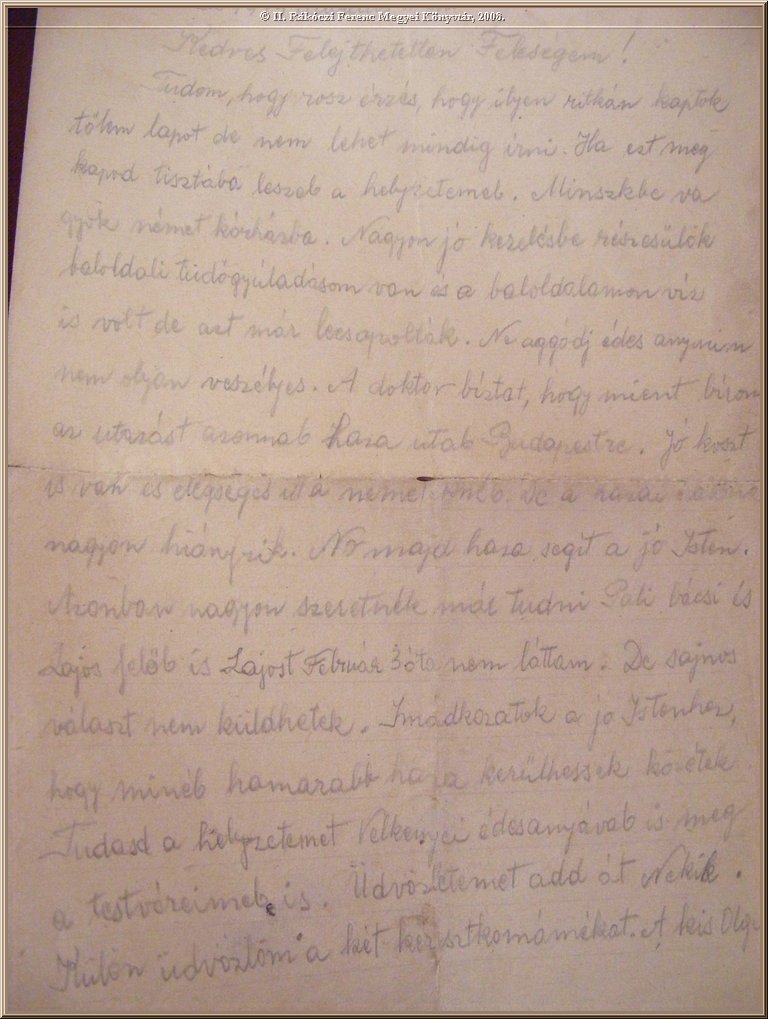 © II. Rákóczi Ferenc Megyei Könyvtár, 2008.
Kedves Felejthetetlen Feleségem!
Tudom, hogy rosz érzés, hogy ilyen ritkán kaptok
tőlem lapot de nem lehet mindig irni. Ha ezt meg
kapod tisztába leszel a helyzetemel. Minszkbe va
gyok német kórházba. Nagyon jó kezelésbe részesülök
baloldali tüdőgyúladásom van és a baloldalamon víz
is volt de azt már lecsapolták. Ne aggódj édes anyuim
nem olyan veszélyes. A doktor bíztat, hogy mient birom
az utazást azonnal haza utal Budapestre. Jó koszt
is van is elégséges német De a hazai
nagyon hiányzik. No majd haza segit a jó Isten.
Azonban nagyon szeretnék már tudni Pali bácsi is
Lajos felöl is Lajost Február 3óta nem láttam. De sajnos
választ nem küldhetek. Imádkozatok a jo Istenhez,
hogy minél hamarabb haza kerülhessek közétek.
Tudasd a helyzetemet édesanyával is meg
a testvéreimel is. Üdvözletemet add át Nekik.
Külön üdvözlöm a két keresztkomámékat. A kis Olgi